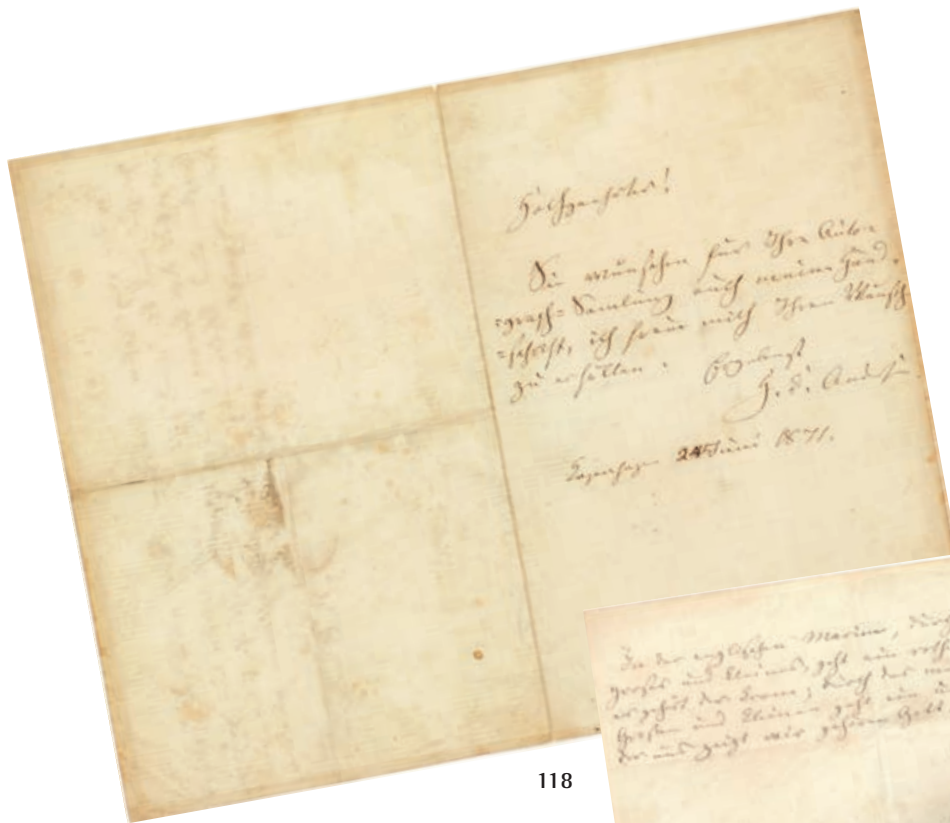 Hochgeehrter!
Sie wünschen für Ihre Auto-
=graph=Samlung auch meine Hand-
=schrift, ich freue mich Ihren Wunsch
zu erfüllen. Ergebenst
H. C. Andersen
Kopenhagen 24 Juni 1871.
118
In der englischen Marine, durch
Großes und Kleines, geht ein rother
er gehört der Krone; durch das
Großen und Kleinen geht ein
der uns zeigt wir gehören Gott